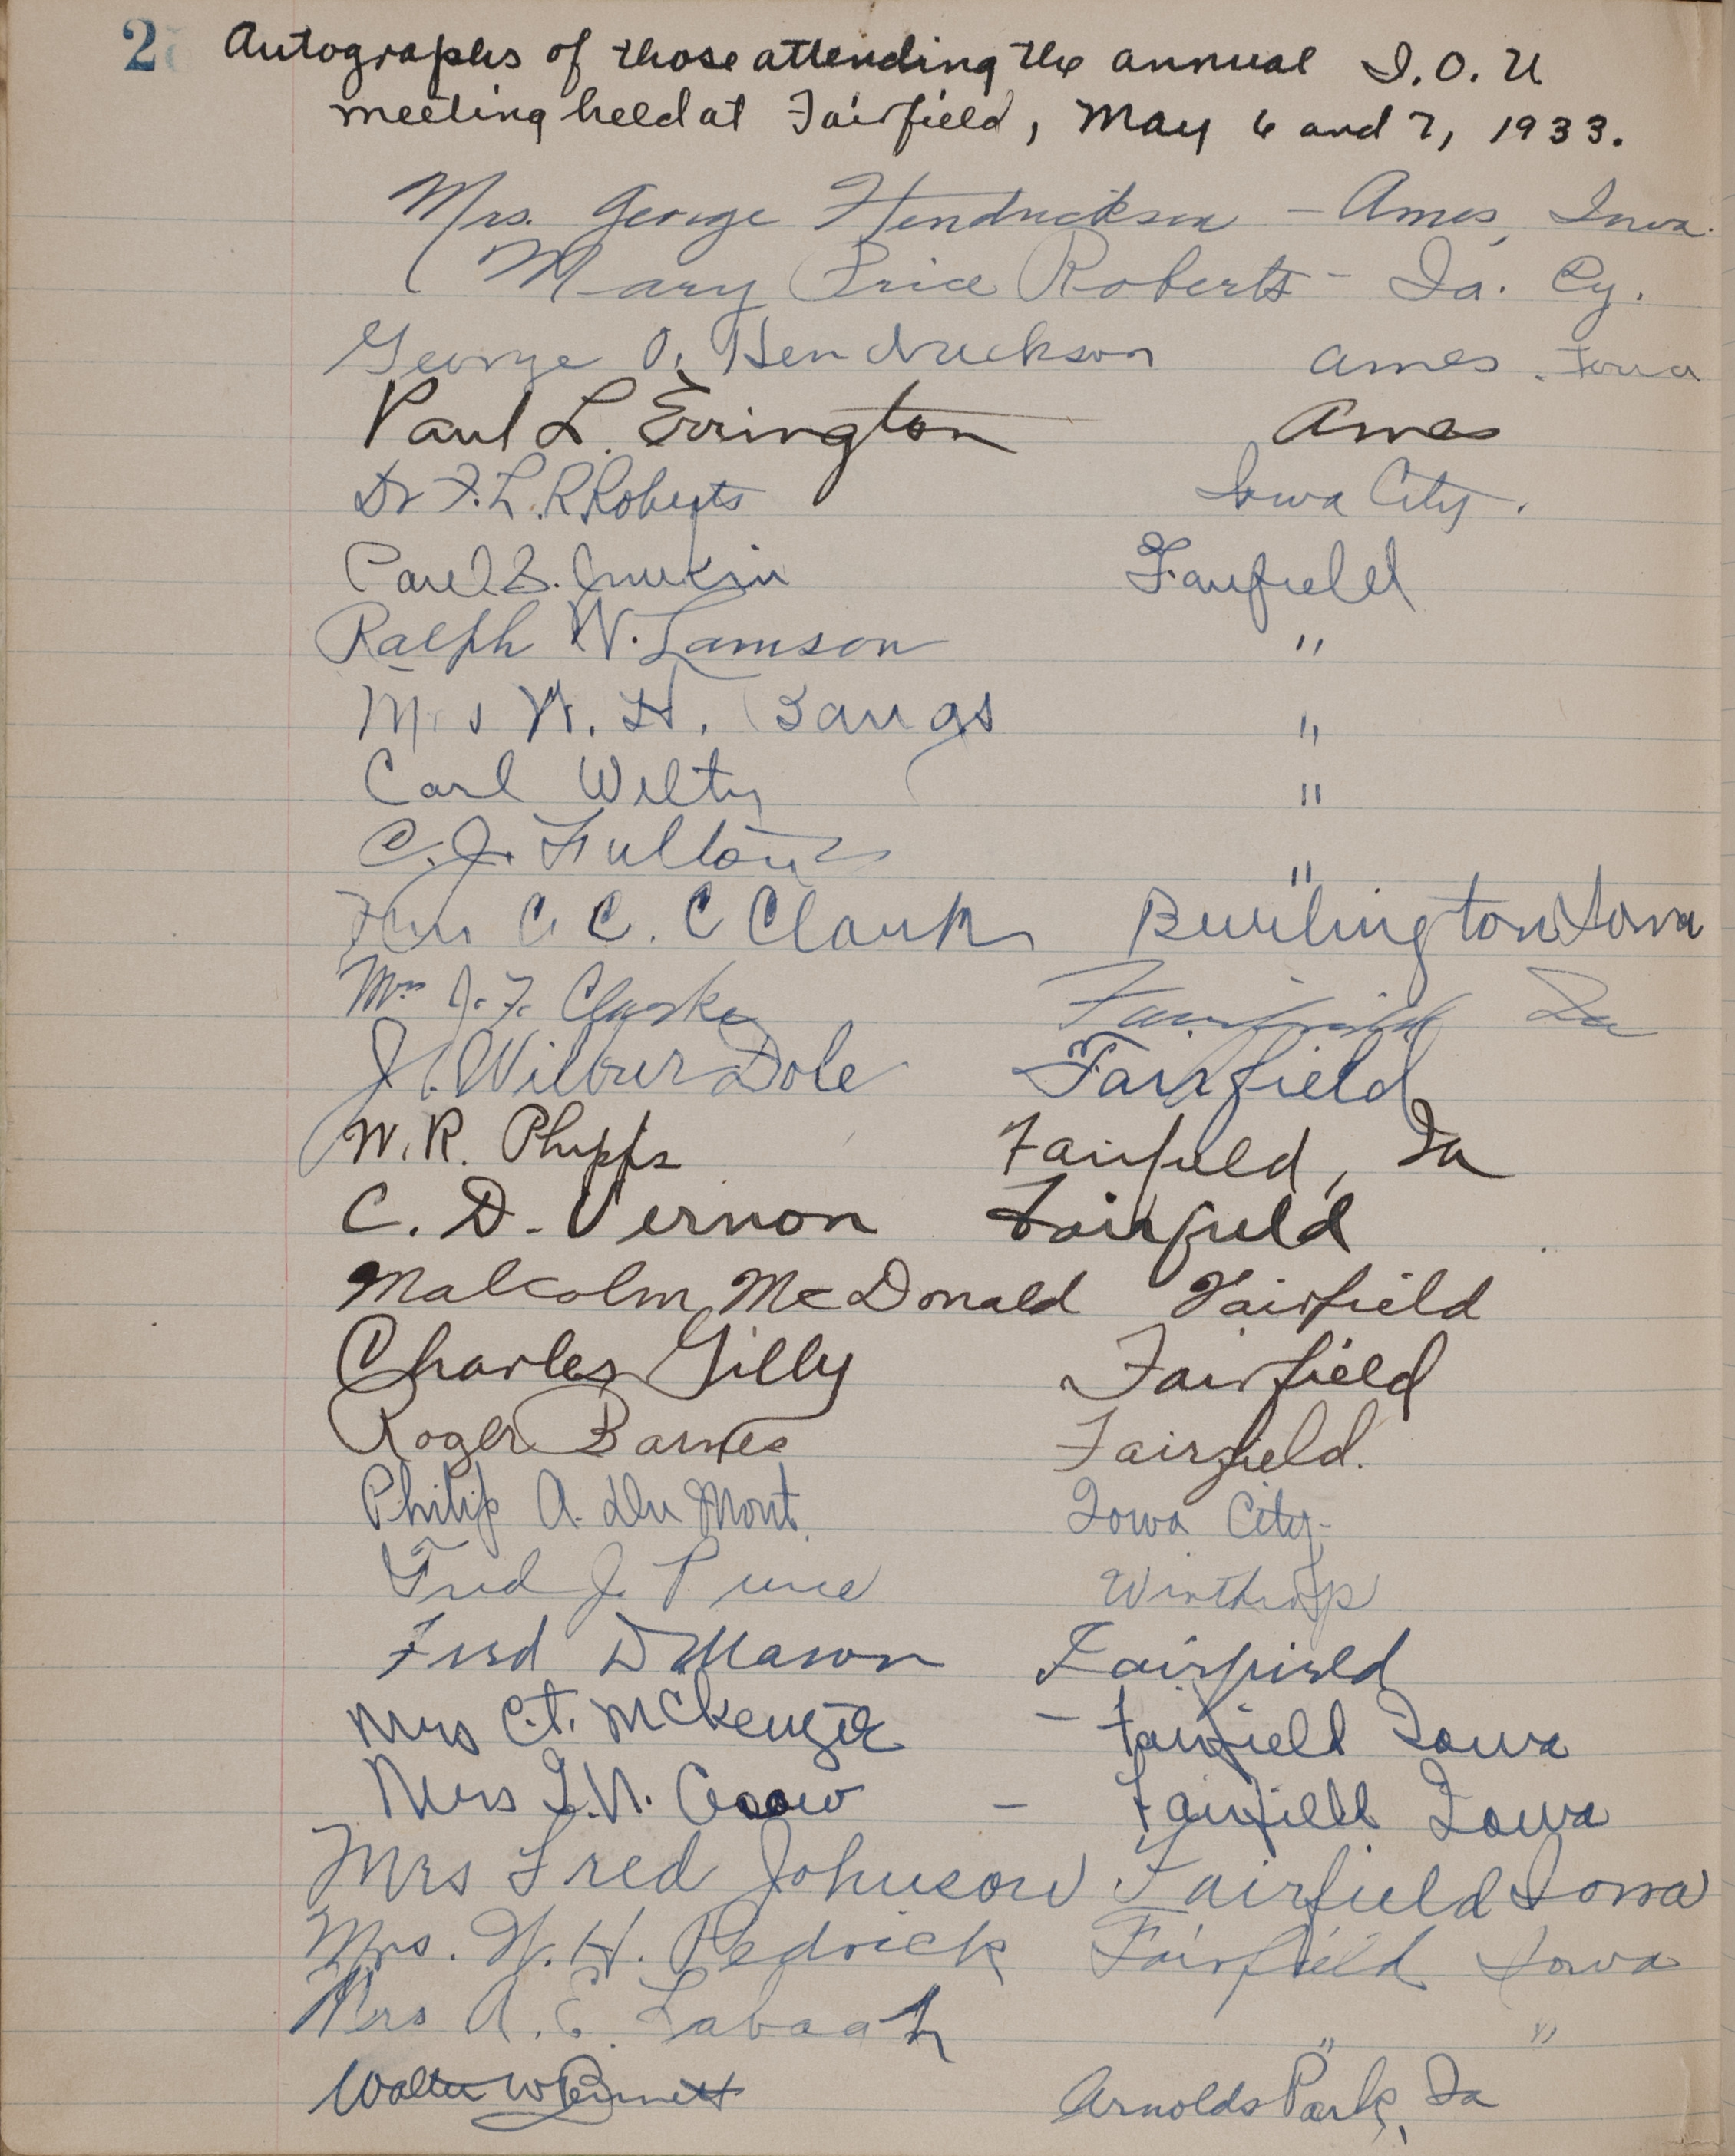 2
Autographs of those attending the annual I.O.U
meeting held at Fairfield, May 6 and 7, 1933.
Mrs. George Hendrickson - Ames, Iowa.
Mary Price Roberts - Ia. Cy.
George O. Hendrickson Ames. Iowa
Paul L. Errington Ames
Dr F.L.R. Roberts Iowa City.
B. Fairfield
Ralph W. Lamson "
Mrs W. H. Bangs "
Carl Welty "
C.J. Fulton "
C. C. Clark Burlington Iowa
Mrs J.F. Clarke Fairfield Ia
J. Wilbur Dole Fairfield
W.R. Phipps Fairfield, Ia
C. D. Vernon Fairfield
Malcolm McDonald Fairfield
Charles Gilly Fairfield
Roger Barnes Fairfield.
Philip A. Du Mont. Iowa City.
Fred J. Pierce Winthrop
Fred D Mason Fairfield
Mrs C.t. McKenzie - Fairfield Iowa
Mrs - Fairfield Iowa
Mrs Fred Johnson Fairfield Iowa
Mrs. W. H. Pedrick Fairfield Iowa
Mrs A. E. Labagh " "
Walter W Bennett Arnolds Park, Ia